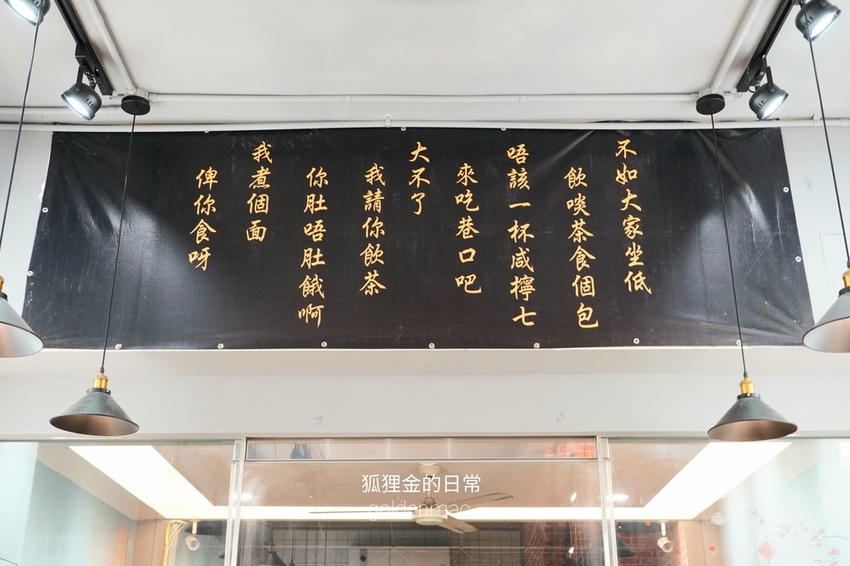 不如大家坐低
飲啖茶食個包
唔該一杯咸檸七
來吃巷口吧
大不了
我請你飲茶
你肚唔肚餓啊
我煮個面
俾你食呀
狐狸金的日常
goldenmac